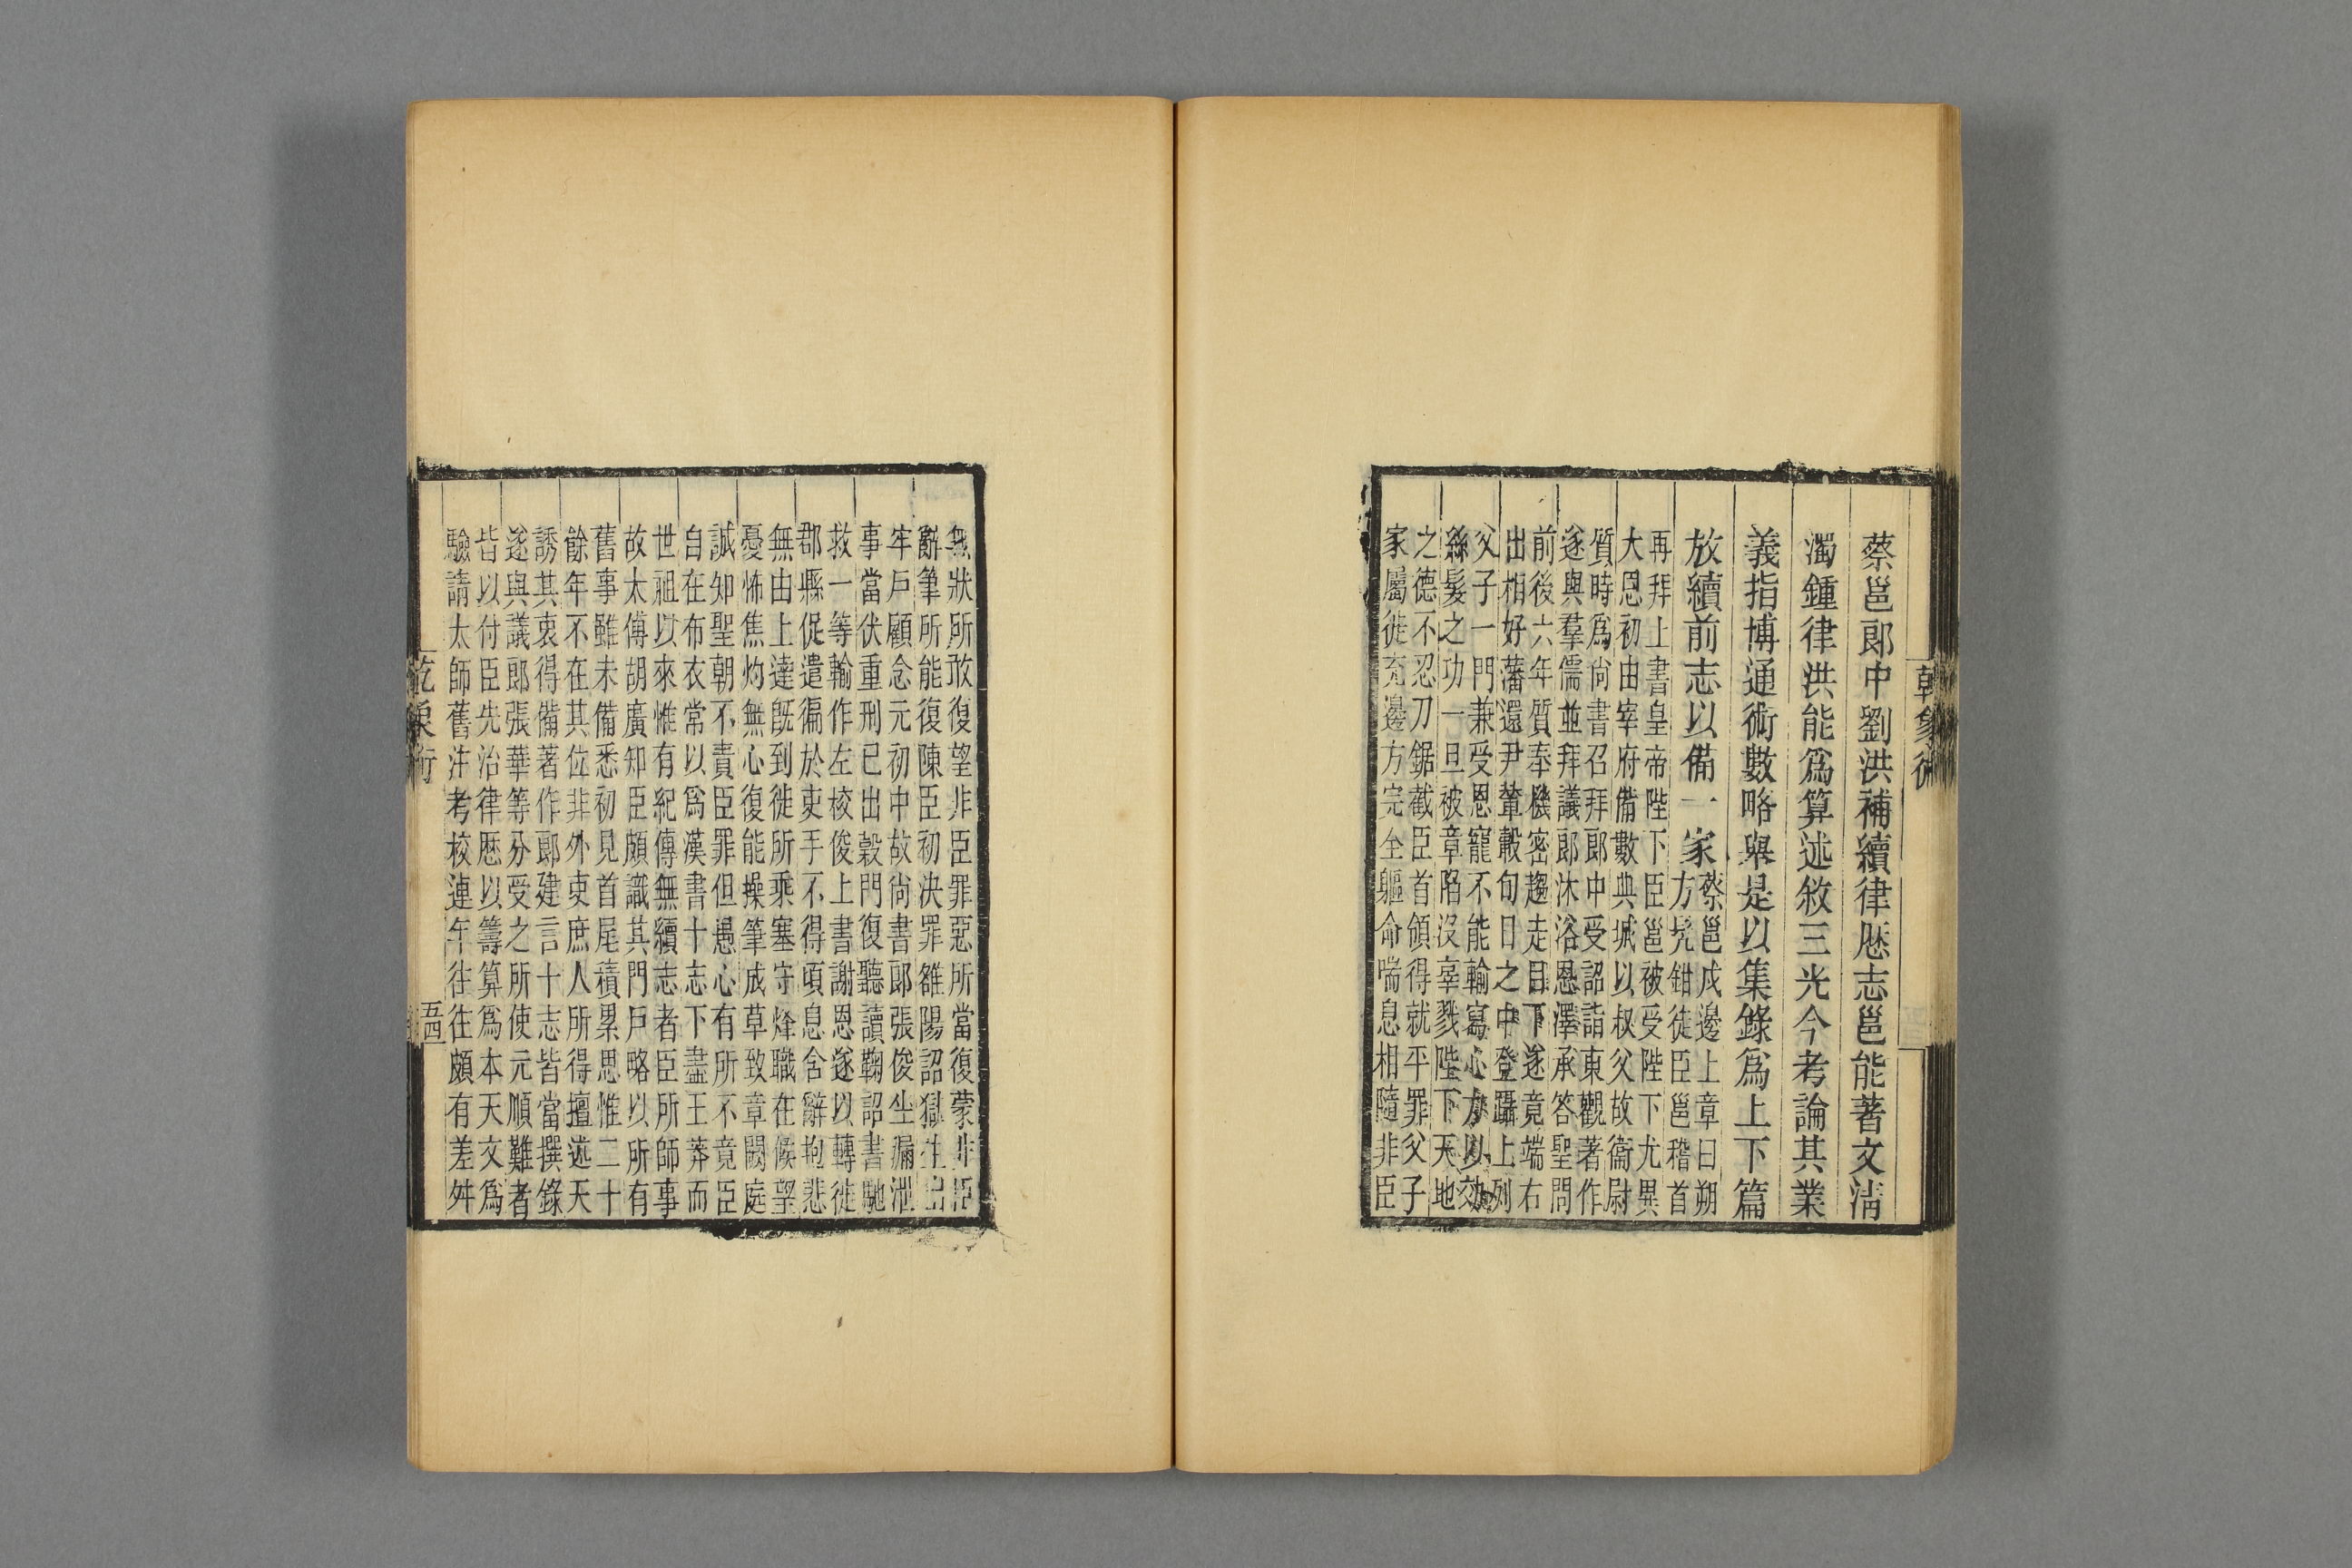 蔡邕郎中劉洪補續律厯志邕能著文淸
濁鍾律洪能爲算述敘三光今考論其業
義指博通術數略舉是以集錄爲上下篇
放續前志以備一家
蔡邕戍邊上章曰朔
方髠鉗徒臣邕稽首
再拜上書皇帝陛下臣邕被受陛下尤異
大恩初由宰府備數典城以叔父故衞尉
質時爲尚書召拜郎中受詔詣東觀著作
遂與羣儒並拜議郎沐浴恩澤承答聖問
前後六年質奉機密趨走目下遂竟端右
出相好藩還尹輦轂旬日之中登躡上列
父子一門兼受恩寵不能輸寫心力以效
絲髮之功一旦被章陷沒辜戮陛下天地
之德不忍刀鋸截臣首領得就平罪父子
家屬徙充邊方完全軀命喘息相隨非臣
無狀所敢復望非臣罪惡所當復蒙非臣
辭筆所能復陳臣初決罪雒陽詔獄生出
牢戶顧念元初中故尚書郎張俊坐漏泄
事當伏重刑已出穀門復聽讀鞠詔書馳
救一等輸作左校俊上書謝恩遂以轉徙
郡縣促遣徧於吏手不得頃息含辭抱悲
無由上達旣到徙所乘塞守烽職在候望
憂怖焦灼無心復能操筆成草致章闕庭
誠知聖朝不責臣罪但愚心有所不竟臣
自在布衣常以爲漢書十志下盡王莽而
世祖以來惟有紀傳無續志者臣所師事
故太傅胡廣知臣頗識其門戶略以所有
舊事雖未備悉初見首尾積累思惟二十
餘年不在其位非外吏庶人所得擅述天
誘其衷得備著作郎建言十志皆當撰錄
遂與議郎張華等分受之所使元順難者
皆以付臣先治律厯以籌算爲本天文爲
驗請太師舊注考校連年往往頗有差舛
乾象術
五四